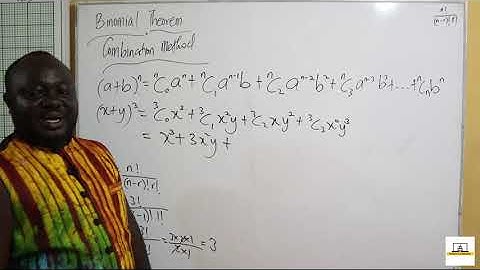 Binomial Theorem
Combination Method
(a+b)ⁿ = ⁿC₀aⁿ + ⁿC₁aⁿ⁻¹b + ⁿC₂aⁿ⁻²b² + ⁿC₃aⁿ⁻³b³ + ... + ⁿCₙbⁿ
(x+y)³ = ³C₀x³ + ³C₁x²y + ³C₂xy² + ³C₃x⁰y³
= x³ + 3x²y +
n!
(n-r)! r!
3!
-1)! 1!
= 3
n!
(n-r)! r!